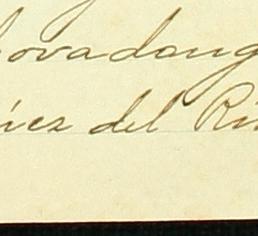 ovadong
ez del Ri